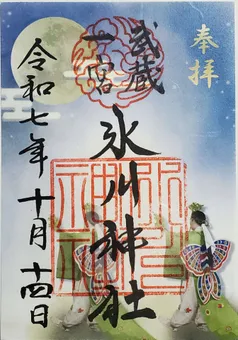 奉拝
武蔵
一宮
氷川神社
令和七年十月十四日